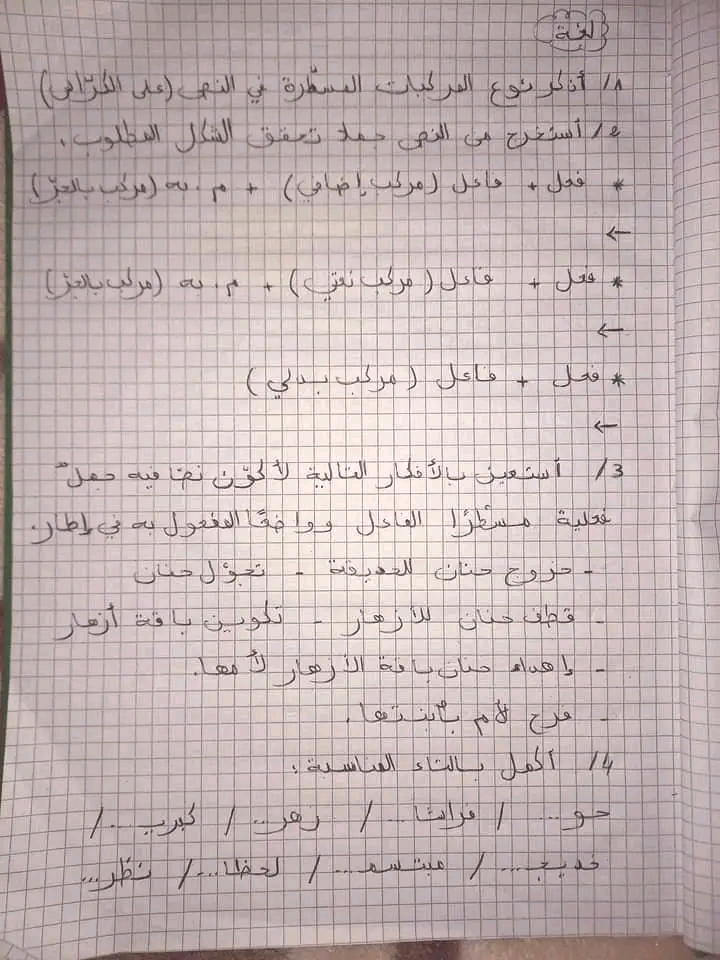 لغة
1/ أذكر نوع المركبات المسطّرة في النص (على الكرّاس)
2/ أستخرج من النص جملا تحقق الشكل المطلوب.
* فعل + فاعل (مركب إضافي) + م. به (مركب بالجرّ)
←
* فعل + فاعل (مركب نعتي) + م. به (مركب بالجرّ)
←
* فعل + فاعل (مركب بدلي)
←
3/ أستعين بالأفكار التالية لأكوّن نصا فيه جملٌ
فعلية مسطّرًا الفاعل وواضعًا المفعول به في إطار.
- خروج حنان للحديقة - تجوّل حنان
- قطف حنان للأزهار - تكوين باقة أزهار
- إهداء حنان باقة الأزهار لأمها.
- فرح الأم بٱبنتها.
4/ أكمل بالتاء المناسبة:
حو.... / فراشا... / زهر... / كبريـ.... /
خديجـ.... / مبتسمـ.... / لحظا.... / نظر...